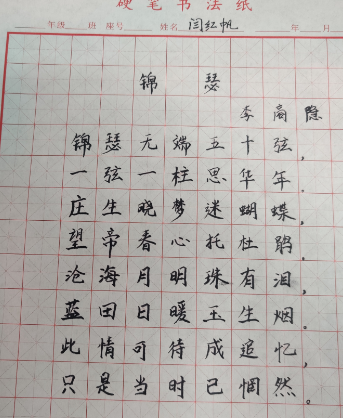 硬笔书法纸
年级 班 座号 姓名 闫红帆 年 月
锦瑟
李商隐
锦瑟无端五十弦,
一弦一柱思华年。
庄生晓梦迷蝴蝶,
望帝春心托杜鹃。
沧海月明珠有泪,
蓝田日暖玉生烟。
此情可待成追忆,
只是当时已惘然。